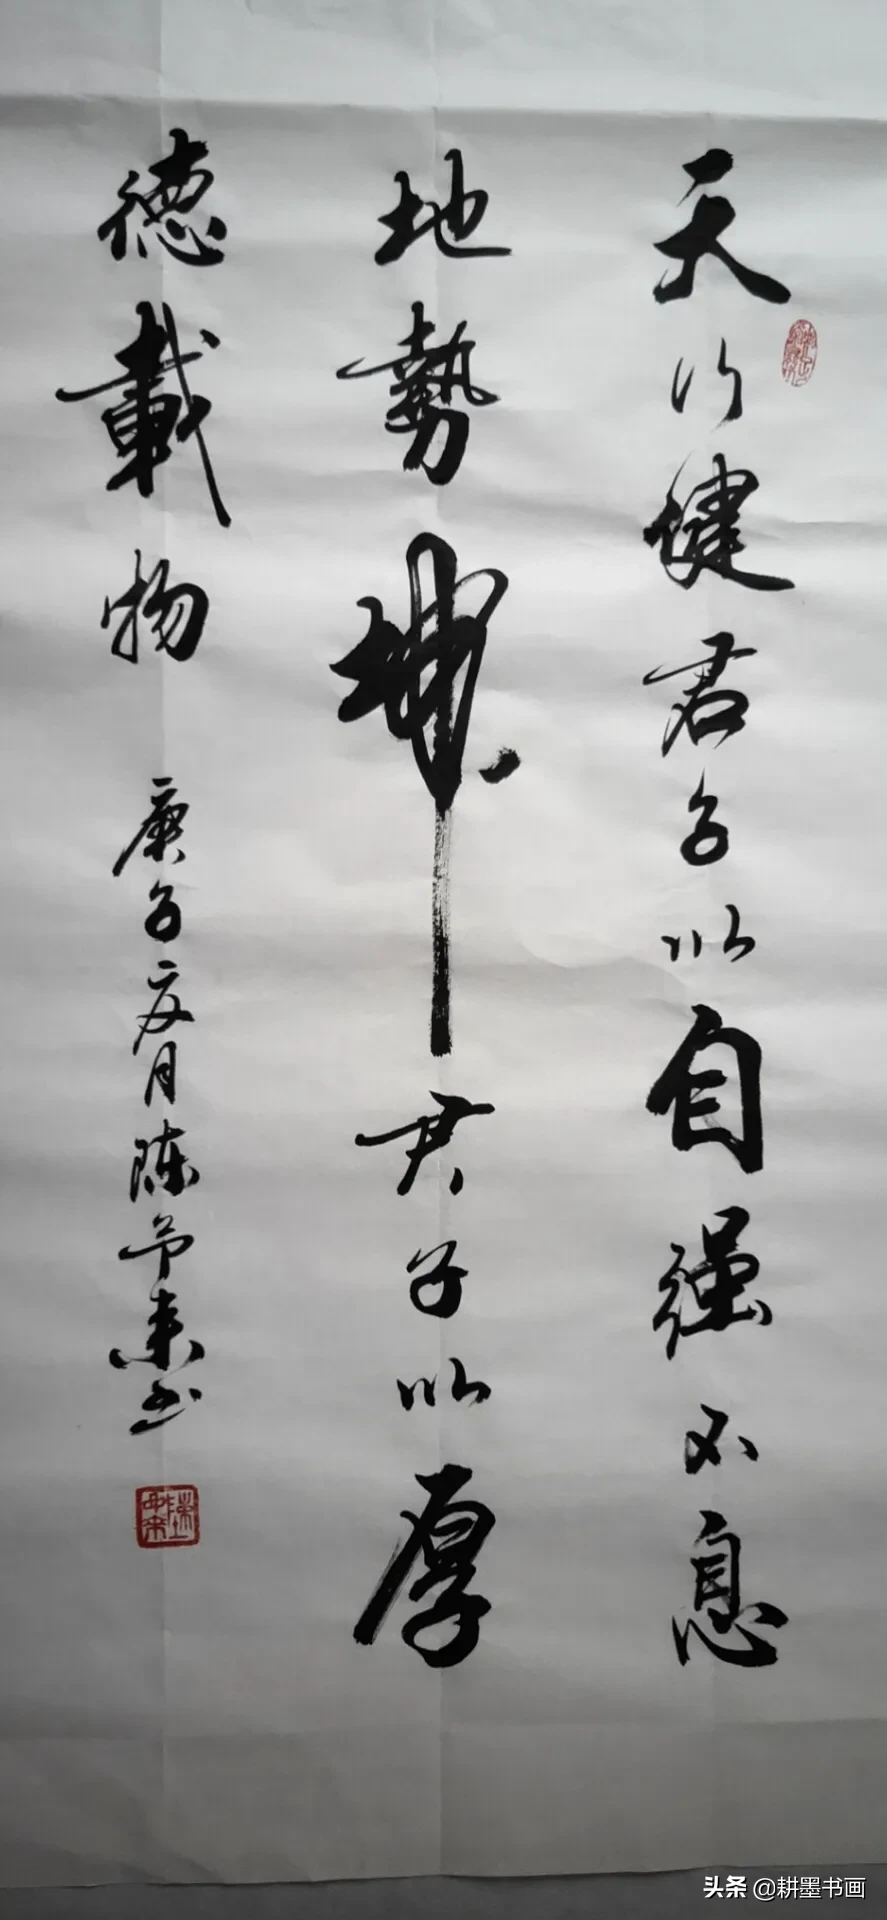 天行健君子以自强不息
地勢坤君子以厚
德載物
庚子夏月陈予来书
头条 @耕墨书画